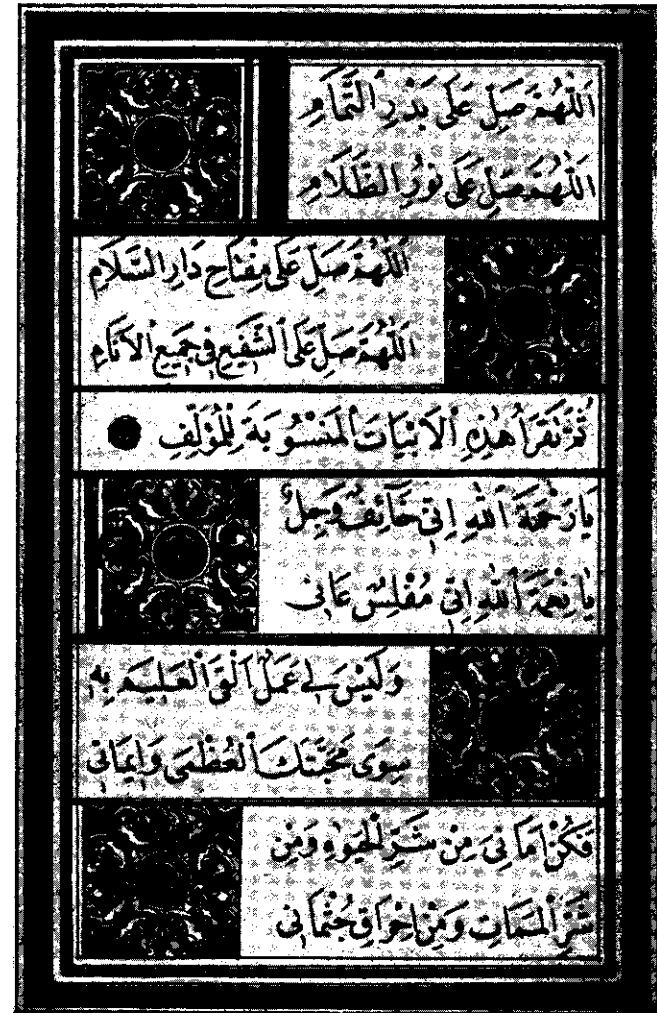 اَللّٰهُمَّ صَلِّ عَلٰى بَدْرِ التَّمَامِ
اَللّٰهُمَّ صَلِّ عَلٰى نُورِ الظَّلَامِ
اَللّٰهُمَّ صَلِّ عَلٰى مِفْتَاحِ دَارِ السَّلَامِ
اَللّٰهُمَّ صَلِّ عَلَى الشَّفِيعِ فِى جَمِيعِ الْاَنَامِ
ثُمَّ تَقْرَأُ هٰذِهِ الْاَبْيَاتَ الْمَنْسُوبَةَ لِلْمُؤَلِّفِ
يَا رَحْمَةَ اللّٰهِ اِنِّى خَآئِفٌ وَجِلٌ
يَا نِعْمَةَ اللّٰهِ اِنِّى مُفْلِسٌ عَانِى
وَلَيْسَ لِى عَمَلٌ اَلْقَى الْعَلِيمَ بِهِ
سِوٰى مَحَبَّتِكَ الْعُظْمٰى وَاِيمَانِى
فَكُنْ اَمَانِىَ مِنْ شَرِّ الْحَيٰوةِ وَمِنْ
شَرِّ الْمَمَاتِ وَمِنْ اِحْرَاقِ جُثْمَانِى